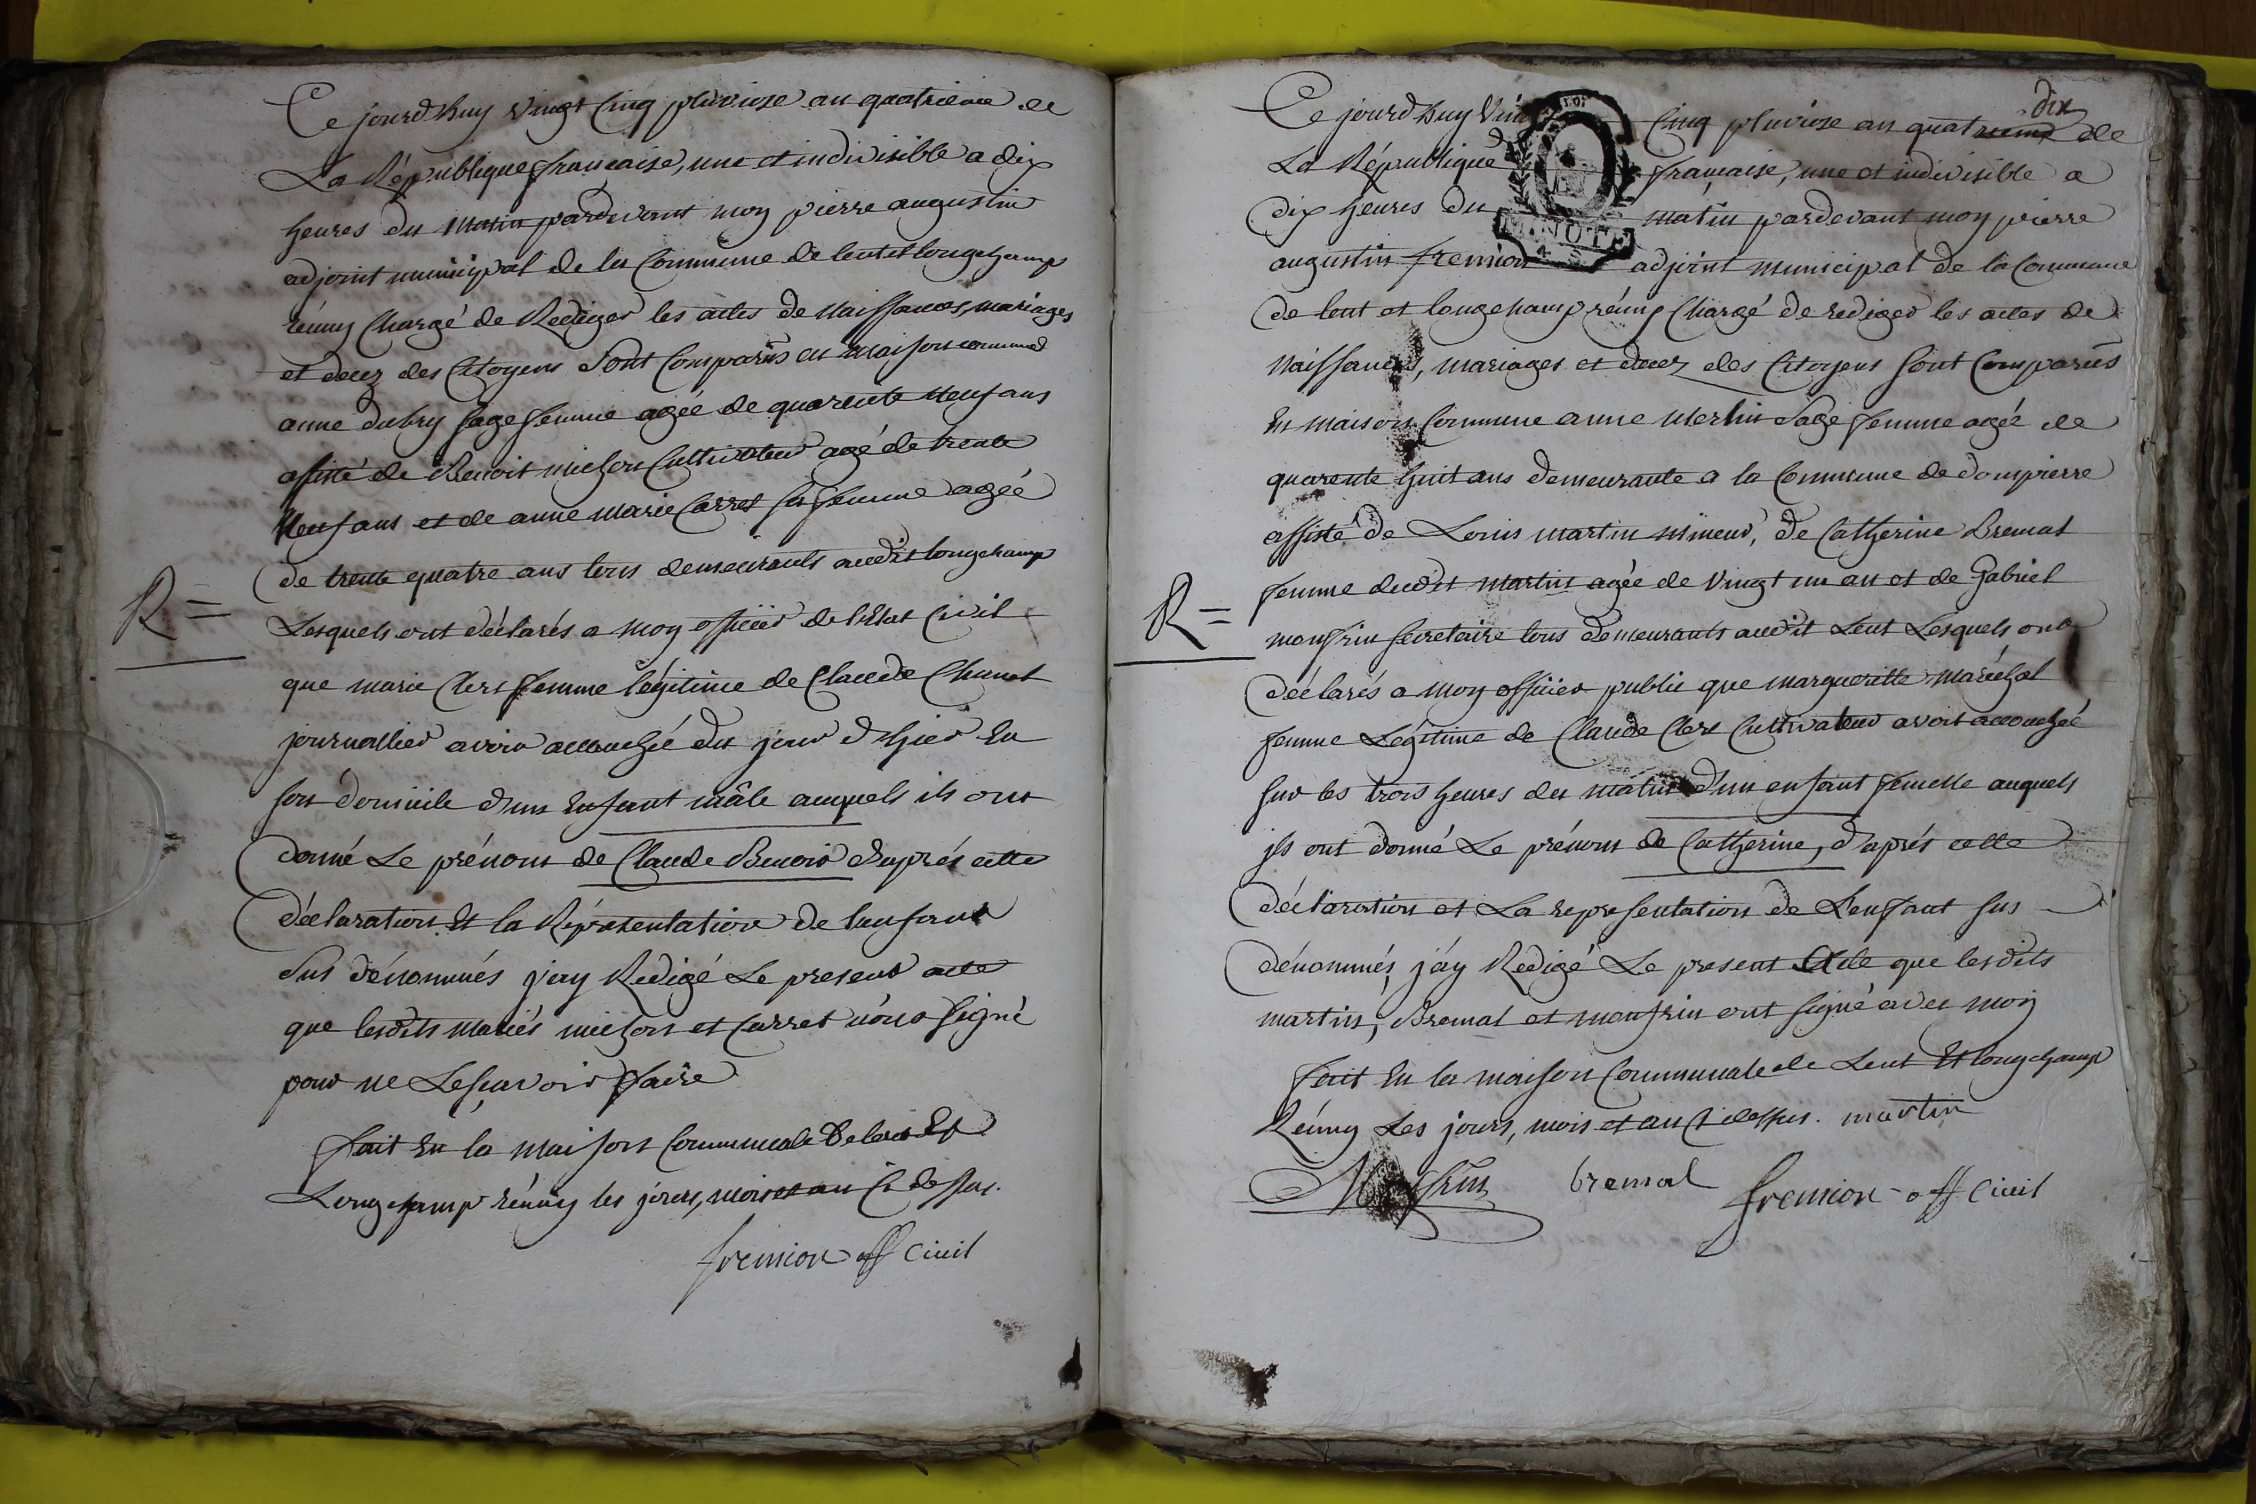 Ce jourdhuy vingt Cinq pluviose an quatrieme de
La République française, une et indivisible a dix
heures du Matin pardevant moy pierre augustin
adjoint municipal de la Commune de lent et longchamp
réuny Chargé de Rediger les actes de Naissances, mariages
et decez des Citoyens Sont Comparüs en maison commune
anne dubry sage femme agée de quarente Neuf ans
assisté de Benoit michon Cultivateur agé de trente
Neuf ans et de anne marie Carret sa femme agée
de trente quatre ans tous demeurants audit longchamp
R=
Lesquels ont déclarés a moy officier de l'Etat Civil
que marie Clert femme légitime de Claude Chanel
journallier avoir accouchée du jour d'hier En
son domicile d'un Enfant mâle auquels ils ont
donné Le prénom de Claude Benoit d'après cette
déclaration Et la Réprésentation de l'enfant
sus dénommés j'ay Redigé Le present acte
que lesdits mariés michon et Carret nons signé
pour ne Le sçavoir faire
fait En la maison Communale de lent Et
Longchamp réuny les jours, mois et an Ci dessus.
fremion off Civil
dix
Ce jourdhuy Vin Cinq pluviose an quatrieme de
La République française, une et indivisible a
dix heures du matin pardevant moy pierre
MINUTE
augustin fremion adjoint municipal de la Commune
de lent et longchamp réuny Chargé de rediger les actes de
Naissances, mariages et decez des Citoyens sont Comparüs
En maison Commune anne Merlin Sage femme agée de
quarente huit ans demeurante a la Commune de dompierre
assisté de Louis martin mineur, de Catherine Bremal
femme dudit martin agée de Vingt un an et de Gabriel
R=
monfrin secretaire tous demeurants audit Lent Lesquels ont
déclarés a moy officier public que margueritte maréchal
femme Légitime de Claude Clert Cultivateur avoit accouchée
sur les trois heures du matin d'un enfant femelle auquels
ils ont donné Le prénom de Catherine, d'après cette
déclaration et La representation de L'enfant sus
dénommés, j'ay Redigé Le present Acte que lesdits
martin, Bremal et monfrin ont signé avec moy
fait En la maison Communale de Lent Et longchamp
Réuny Les jours, mois et an Ci dessus. martin
bremal fremion off Civil